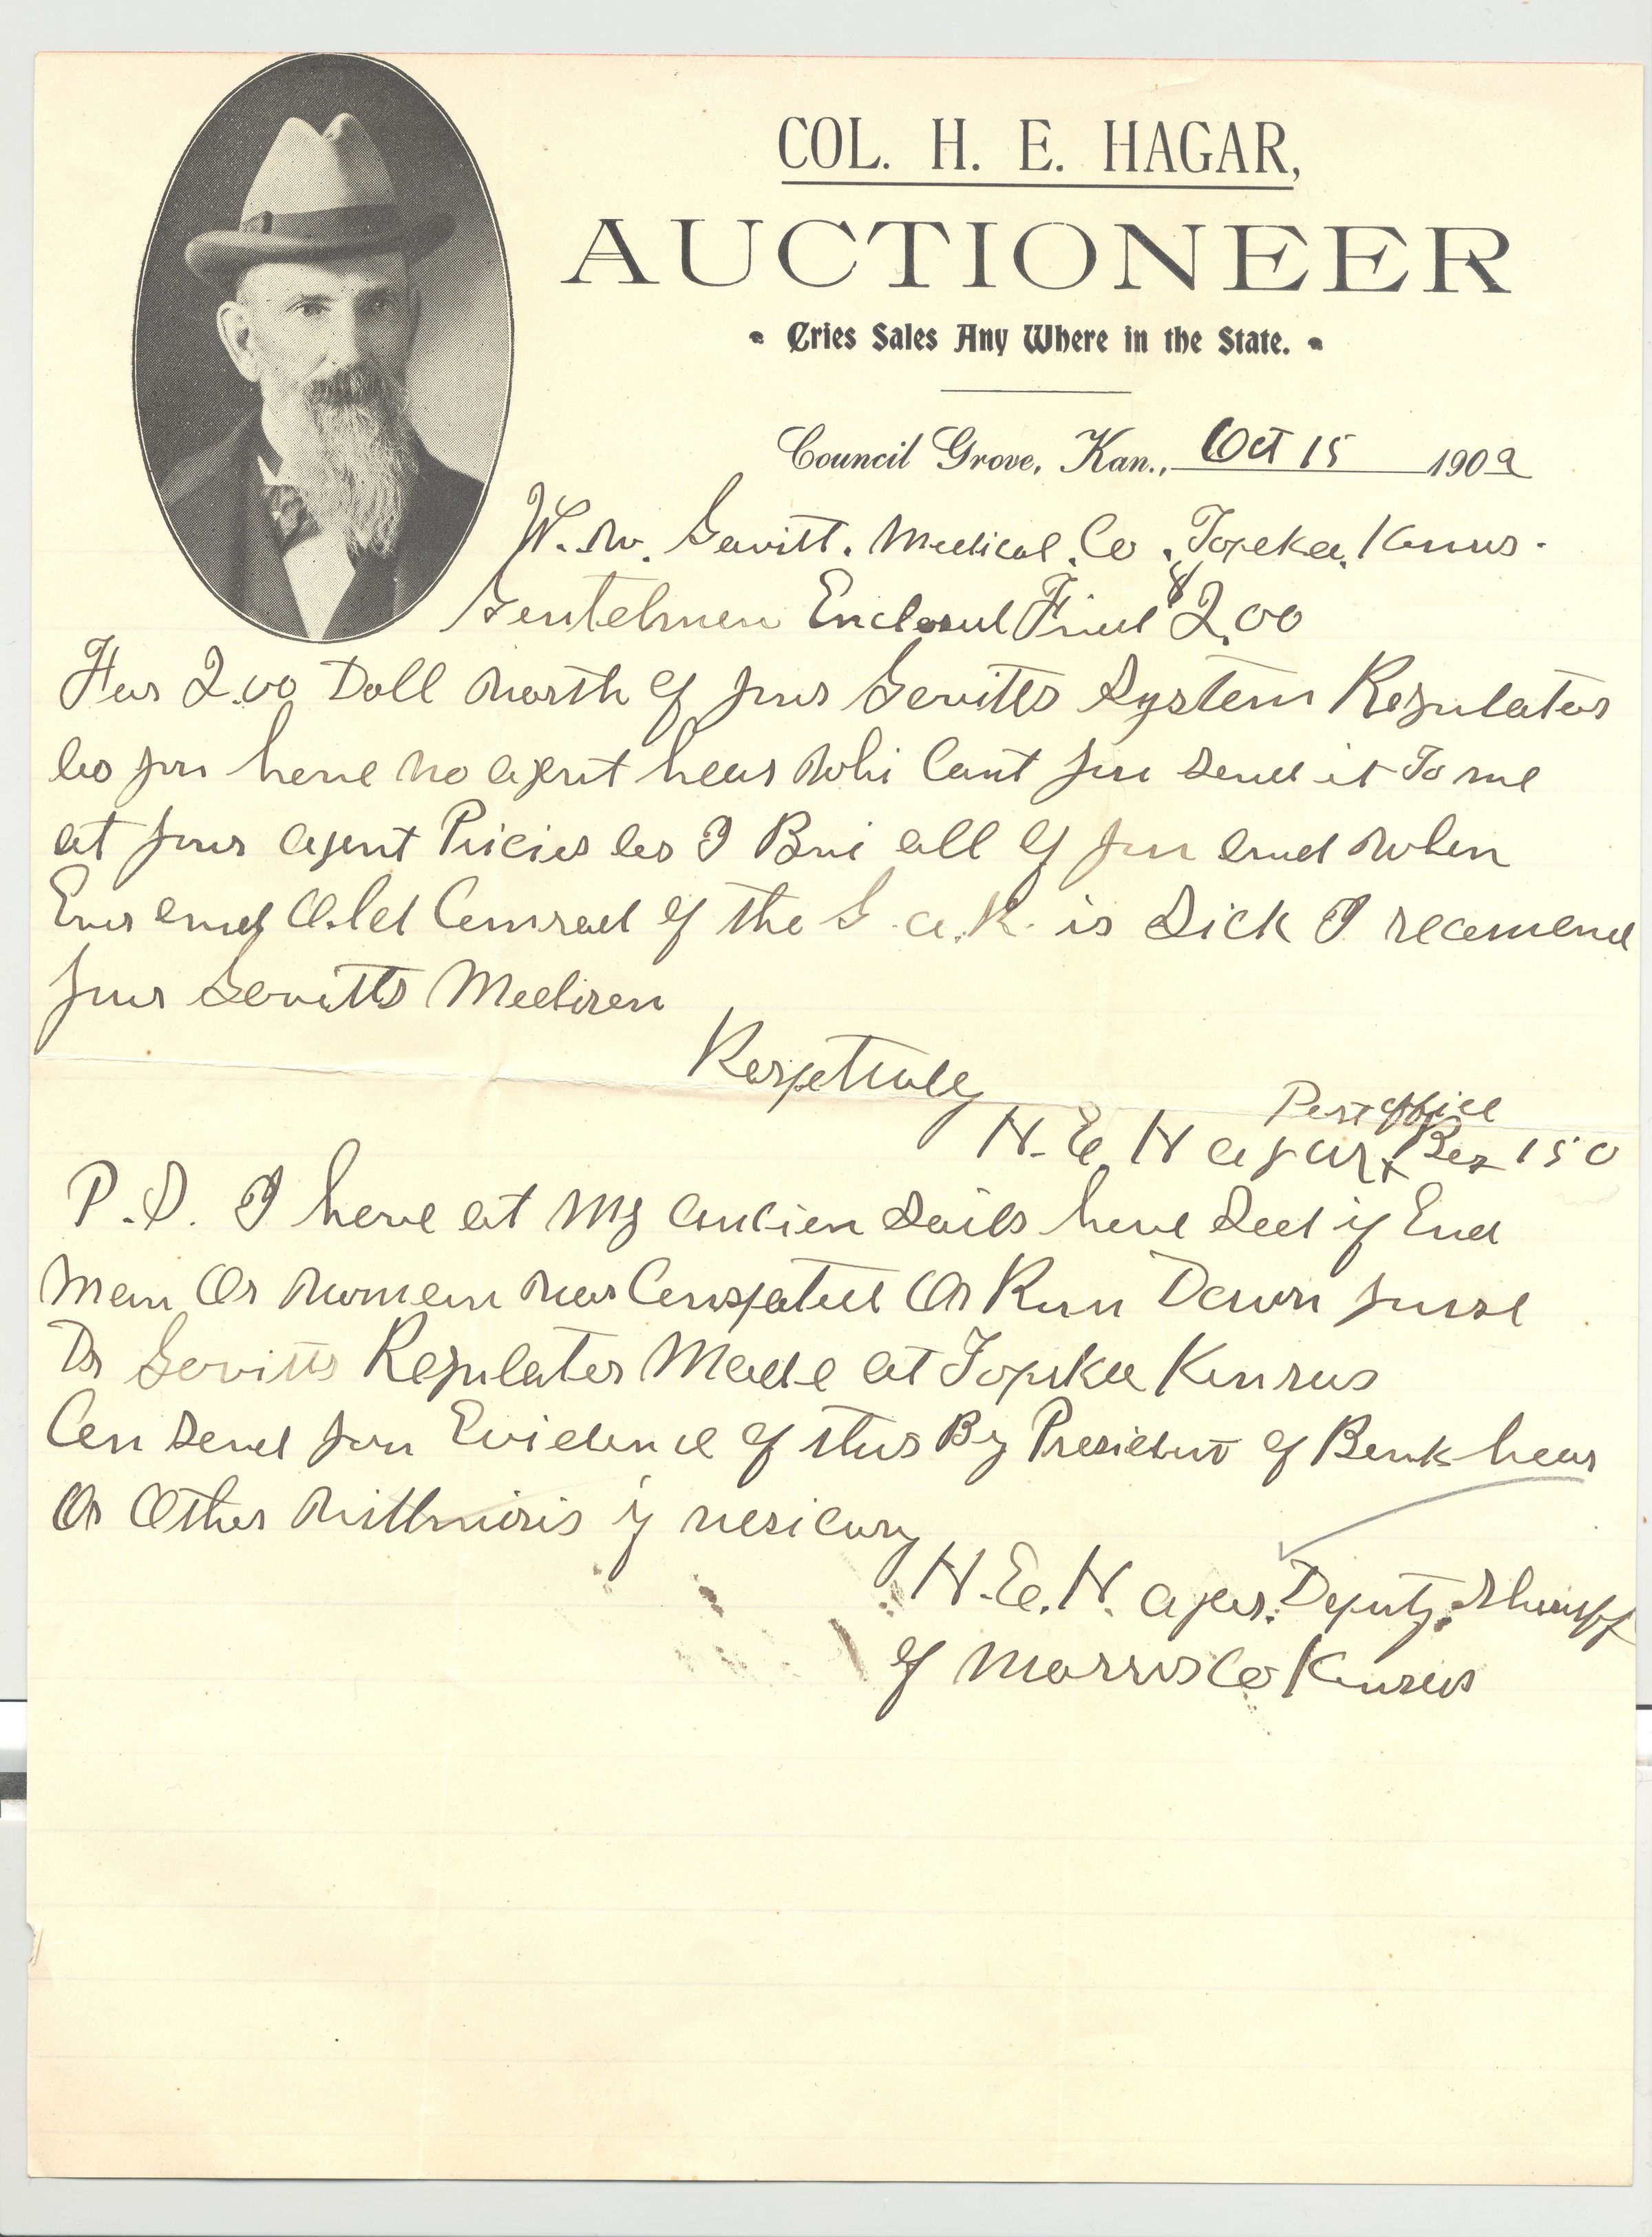 COL. H. E. HAGAR,
AUCTIONEER
Cries Sales Any Where in the State.
Council Grove, Kan., Oct 15 1909
W. W. Gavitt. Medical. Co. Topeka. Kansas.
Gentelmen Enclosed Find $2.00
For 2.00 Doll worth of your Gavitts System Regulator
as you have no agent hear whi Cant you send it To me
at your agent Pricies as I Bui all of you and when
Ever and Old Comrad of the G. a. R. is Sick I recomend
your Gavitts Medicen
Respetruly
H. E. Hagar, Post office Box 150
P.S. I have at my aucien Sails have Sed if End
Man Or Woman was Constpated Or Run Down youse
Dr Gavitts Regulator Made at Topeka Kansas
Can send you Evidence of this By President of Bank hear
Or Other if nesicary
H. E. Hagar. Deputy. Sheriff
of Morris Co Kansas